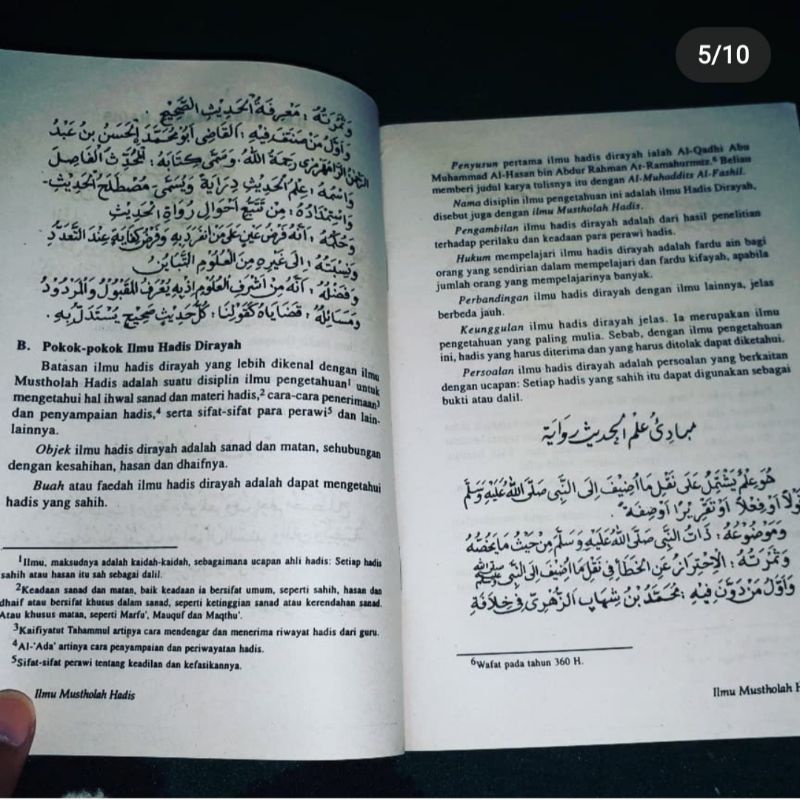 5/10
وَثَمْرَتُهُ : مَعْرِفَةُ الْحَدِيْثِ الصَّحِيْحِ .
وَأَوَّلُ مَنْ صَنَّفَ فِيْهِ : اَلْقَاضِى اَبُوْ مُحَمَّدَ الْحَسَنُ بْنُ عَبْدُ
الرَّحْمٰنِ الرَّامَهُرْمُزِى رَحِمَهُ اللهُ . وَسَمَّى كِتَابَهُ : اَلْمُحَدِّثَ الْفَاصِلَ
وَاسْمُهُ : عِلْمُ الْحَدِيْثِ دِرَايَةً وَيُسَمَّى مُصْطَلَحَ الْحَدِيْثِ -
وَاسْتِمْدَادُهُ : مِنْ تَتَبُّعِ أَحْوَالِ رُوَاةِ الْحَدِيْثِ
وَحُكْمُهُ : أَنَّهُ فَرْضُ عَيْنٍ عَلَى مَنْ انْفَرَدَ بِهِ وَفَرْضُ كِفَايَةٍ عِنْدَ التَّعَدُّدِ
وَنِسْبَتُهُ : إِلَى غَيْرِهِ مِنَ الْعُلُوْمِ التَّبَايُنُ
وَفَضْلُهُ : أَنَّهُ مِنْ أَشْرَفِ الْعُلُوْمِ إِذْ بِهِ يُعْرَفُ الْمَقْبُوْلُ وَالْمَرْدُوْدُ
وَمَسَائِلُهُ : قَضَايَاهُ كَقَوْلِنَا : كُلُّ حَدِيْثٍ صَحِيْحٍ يُسْتَدَلُّ بِهِ .
B. Pokok-pokok Ilmu Hadis Dirayah
Batasan ilmu hadis dirayah yang lebih dikenal dengan ilmu
Mustholah Hadis adalah suatu disiplin ilmu pengetahuan¹ untuk
mengetahui hal ihwal sanad dan materi hadis,² cara-cara penerimaan³
dan penyampaian hadis,⁴ serta sifat-sifat para perawi⁵ dan lain-
lainnya.
Objek ilmu hadis dirayah adalah sanad dan matan, sehubungan
dengan kesahihan, hasan dan dhaifnya.
Buah atau faedah ilmu hadis dirayah adalah dapat mengetahui
hadis yang sahih.
¹Ilmu, maksudnya adalah kaidah-kaidah, sebagaimana ucapan ahli hadis: Setiap hadis
sahih atau hasan itu sah sebagai dalil.
²Keadaan sanad dan matan, baik keadaan ia bersifat umum, seperti sahih, hasan dan
dhaif atau bersifat khusus dalam sanad, seperti ketinggian sanad atau kerendahan sanad.
Atau khusus matan, seperti Marfu', Mauquf dan Maqthu'.
³Kaifiyatut Tahammul artinya cara mendengar dan menerima riwayat hadis dari guru.
⁴Al-'Ada' artinya cara penyampaian dan periwayatan hadis.
⁵Sifat-sifat perawi tentang keadilan dan kefasikannya.
Ilmu Mustholah Hadis
Penyusun pertama ilmu hadis dirayah ialah Al-Qadhi Abu
Muhammad Al-Hasan bin Abdur Rahman Ar-Ramahurmuz.⁶ Belian
memberi judul karya tulisnya itu dengan Al-Muhaddits Al-Fashil.
Nama disiplin ilmu pengetahuan ini adalah ilmu Hadis Dirayah,
disebut juga dengan ilmu Mustholah Hadis.
Pengambilan ilmu hadis dirayah adalah dari hasil penelitian
terhadap perilaku dan keadaan para perawi hadis.
Hukum mempelajari ilmu hadis dirayah adalah fardu ain bagi
orang yang sendirian dalam mempelajari dan fardu kifayah, apabila
jumlah orang yang mempelajarinya banyak.
Perbandingan ilmu hadis dirayah dengan ilmu lainnya, jelas
berbeda jauh.
Keunggulan ilmu hadis dirayah jelas. Ia merupakan ilmu
pengetahuan yang paling mulia. Sebab, dengan ilmu pengetahuan
ini, hadis yang harus diterima dan yang harus ditolak dapat diketahui.
Persoalan ilmu hadis dirayah adalah persoalan yang berkaitan
dengan ucapan: Setiap hadis yang sahih itu dapat digunakan sebagai
bukti atau dalil.
مَبَادِئُ عِلْمِ الْحَدِيْثِ رِوَايَةً
هُوَ عِلْمٌ يَشْتَمِلُ عَلَى نَقْلِ مَا أُضِيْفَ اِلَى النَّبِى صَلَّى اللهُ عَلَيْهِ وَسَلَّمَ
قَوْلًا أَوْ فِعْلًا أَوْ تَقْرِيْرًا أَوْصِفَةً .
وَمَوْضُوْعُهُ : ذَاتُ النَّبِى صَلَّى اللهُ عَلَيْهِ وَسَلَّمَ مِنْ حَيْثُ مَا يَخُصُّهُ
وَثَمْرَتُهُ : اَلْاِحْتِرَازُ عَنِ الْخَطَأِ فِى نَقْلِ مَا أُضِيْفَ اِلَى النَّبِى ﷺ
وَأَوَّلُ مَنْ دَوَّنَ فِيْهِ : مُحَمَّدُ بْنُ شِهَابٍ الزُّهْرِى فِى خِلَافَةِ
⁶Wafat pada tahun 360 H.
Ilmu Mustholah H